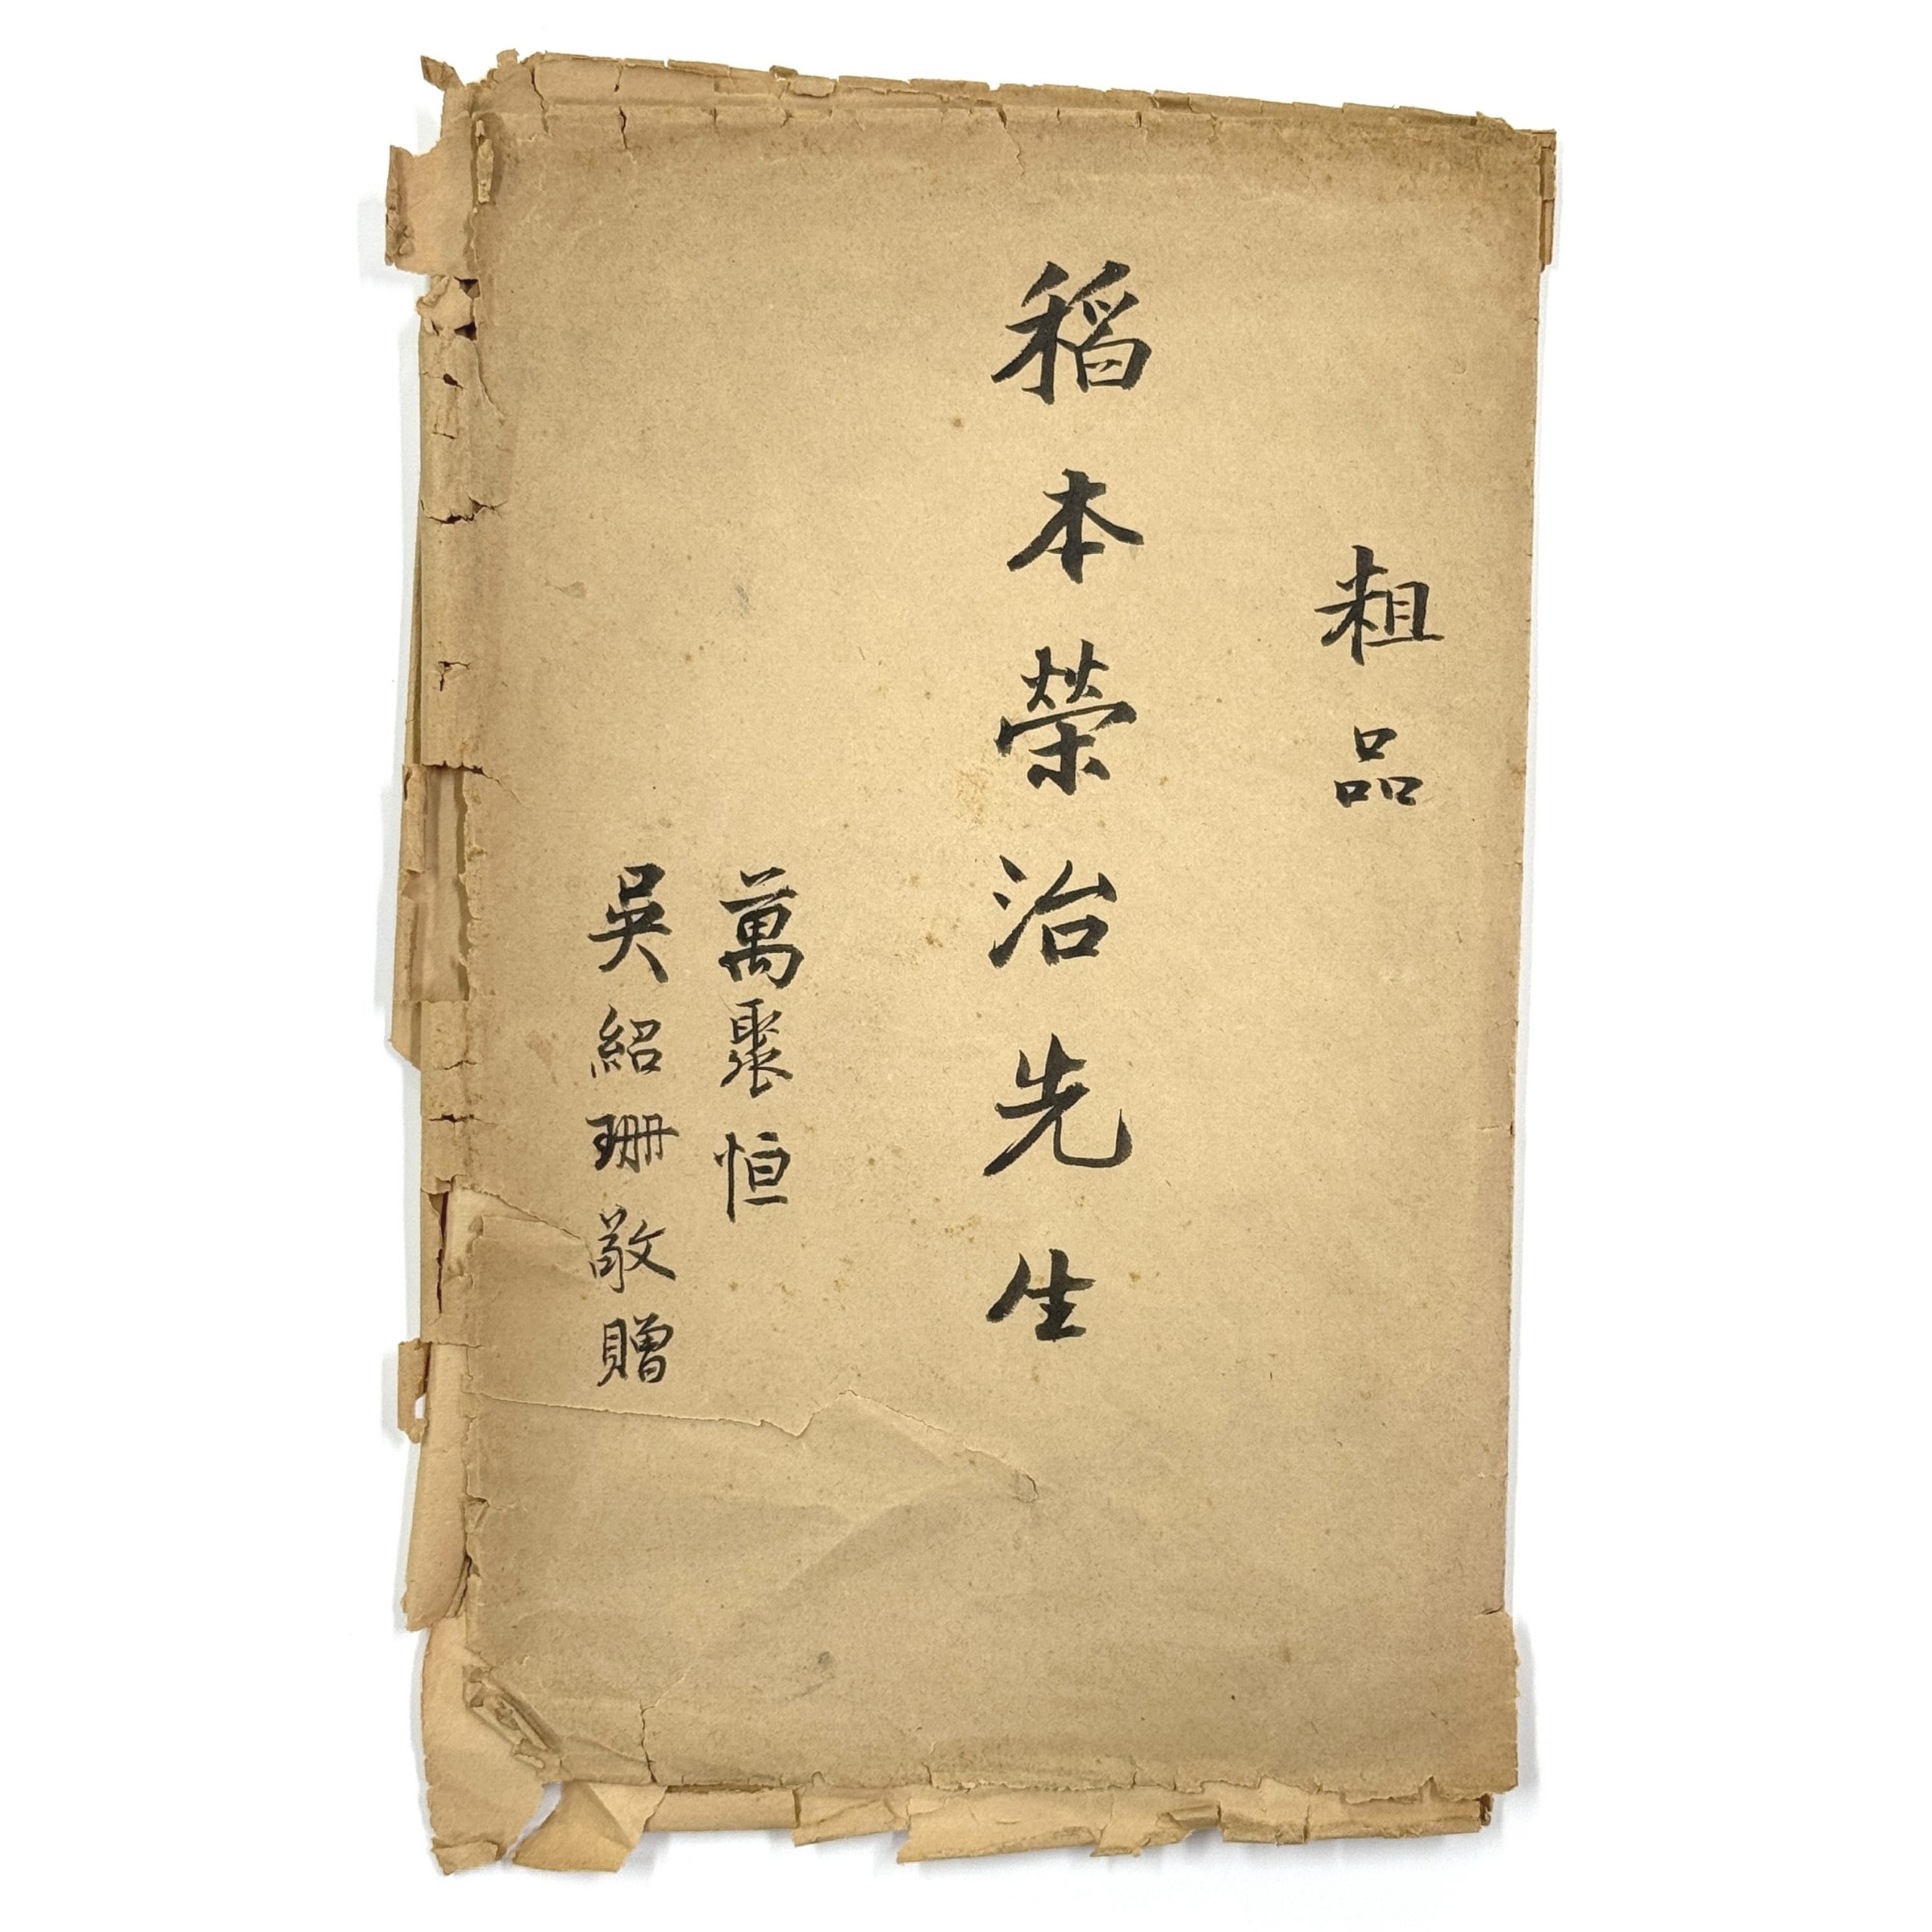 粗品
稻本榮治先生
萬聚恒
吳紹珊敬贈